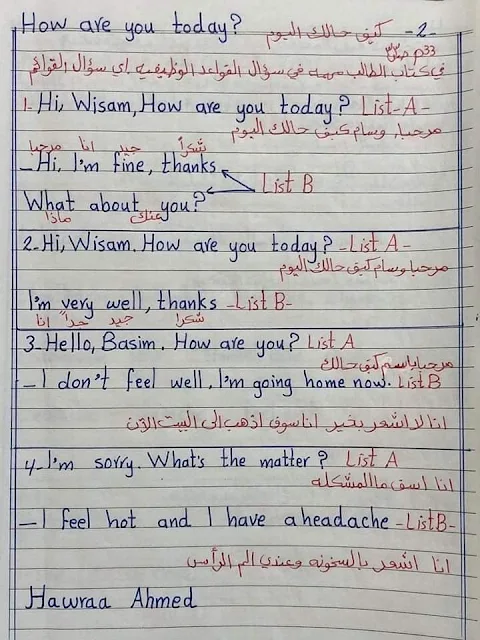 How are you today? كيف حالك اليوم -2-
في كتاب الطالب مهمه في سؤال القواعد الوظيفيه اي سؤال القوائم ص33 P
1- Hi, Wisam, How are you today? List-A-
مرحبا, وسام كيف حالك اليوم
مرحبا انا جيد شكراً
- Hi, I'm fine, thanks
List B
What about you?
ماذا عنك
2-Hi, Wisam. How are you today? -List A-
مرحبا وسام كيف حالك اليوم
I'm very well, thanks -List B-
انا جداً جيد شكرا
3-Hello, Basim. How are you? List A
مرحبا باسم كيف حالك
- I don't feel well, I'm going home now. List B
انا لا اشعر بخير انا سوف اذهب الى البيت الآن
4-I'm sorry. What's the matter? List A
انا اسف ما المشكله
- I feel hot and I have a headache -List B-
انا اشعر بالسخونه وعندي الم الرأس
Hawraa Ahmed